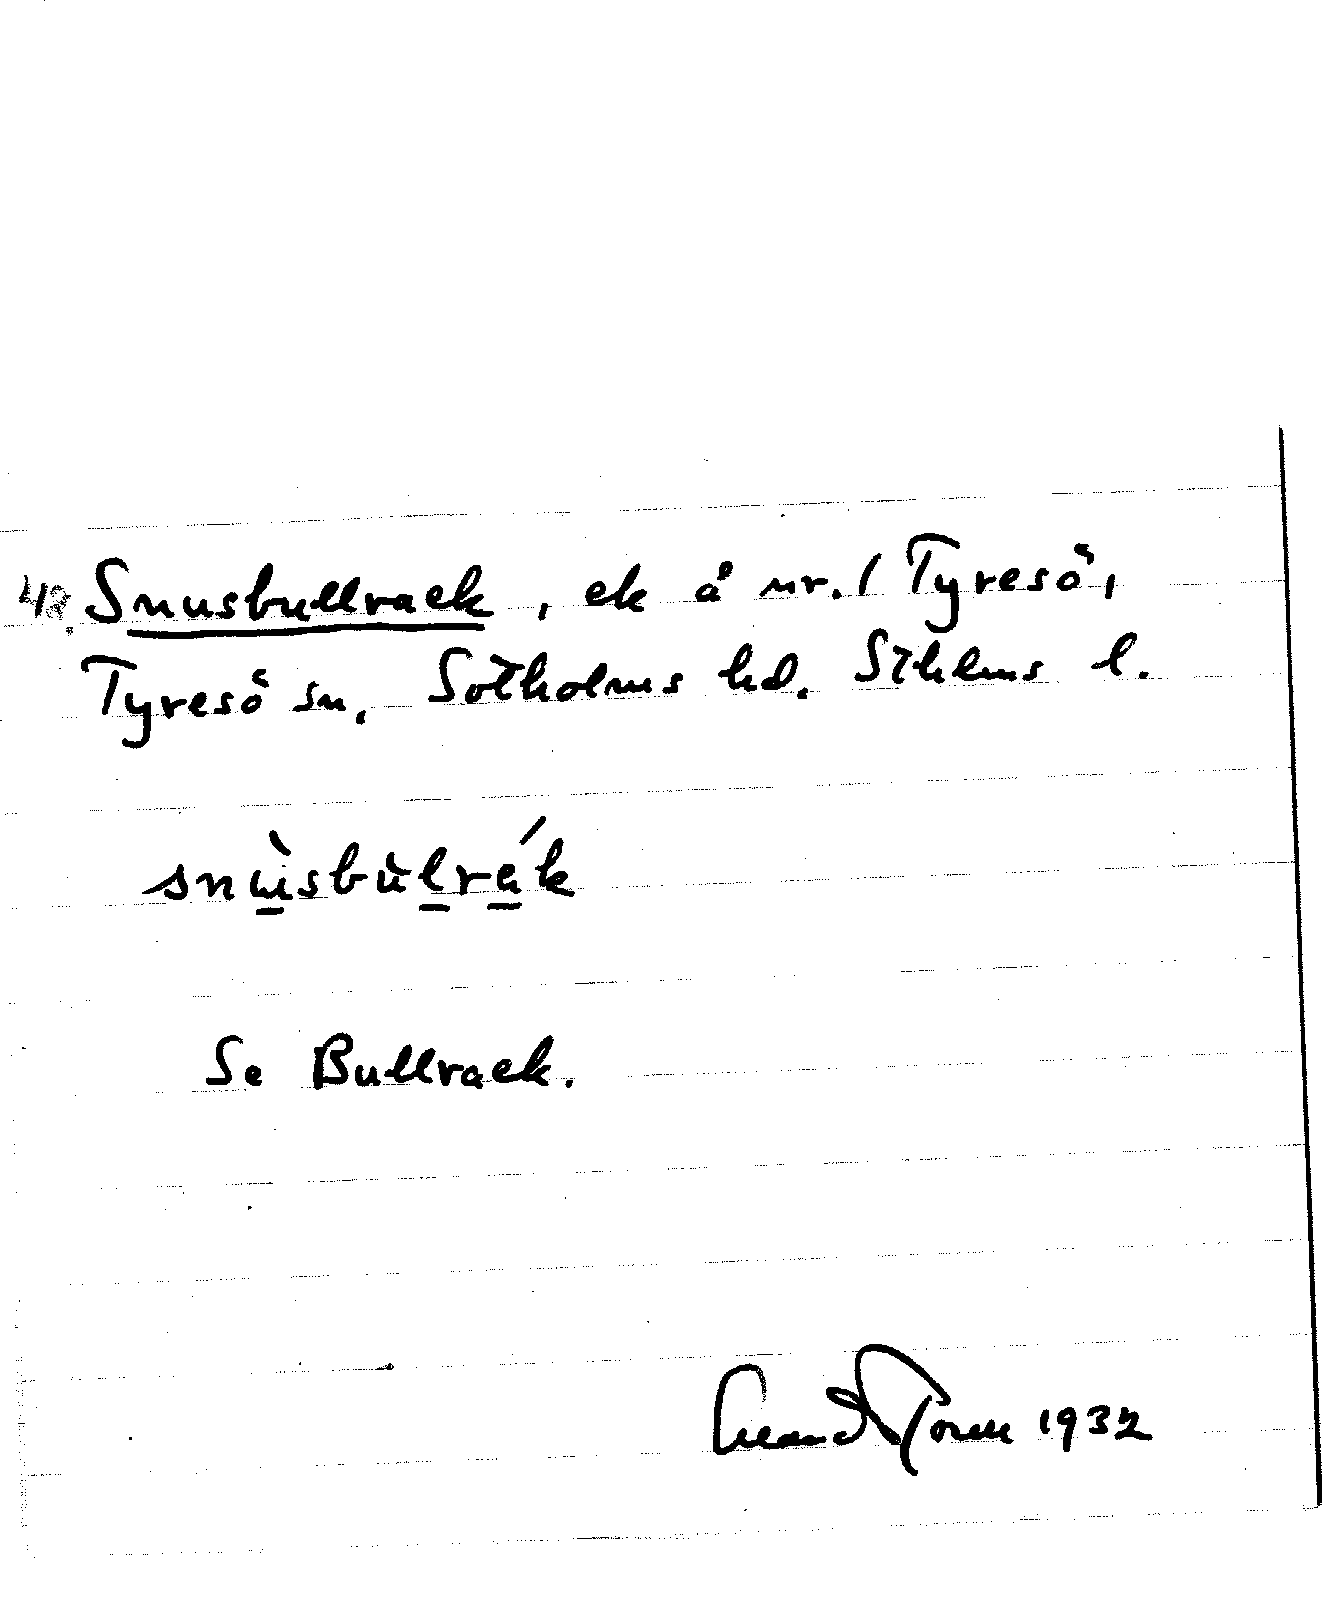 48. Snusbullrack, ek å nr. 1 Tyresö,
Tyresö sn, Sotholms hd. Sthlms l.
snùsbùlrák
Se Bullrack.
1932